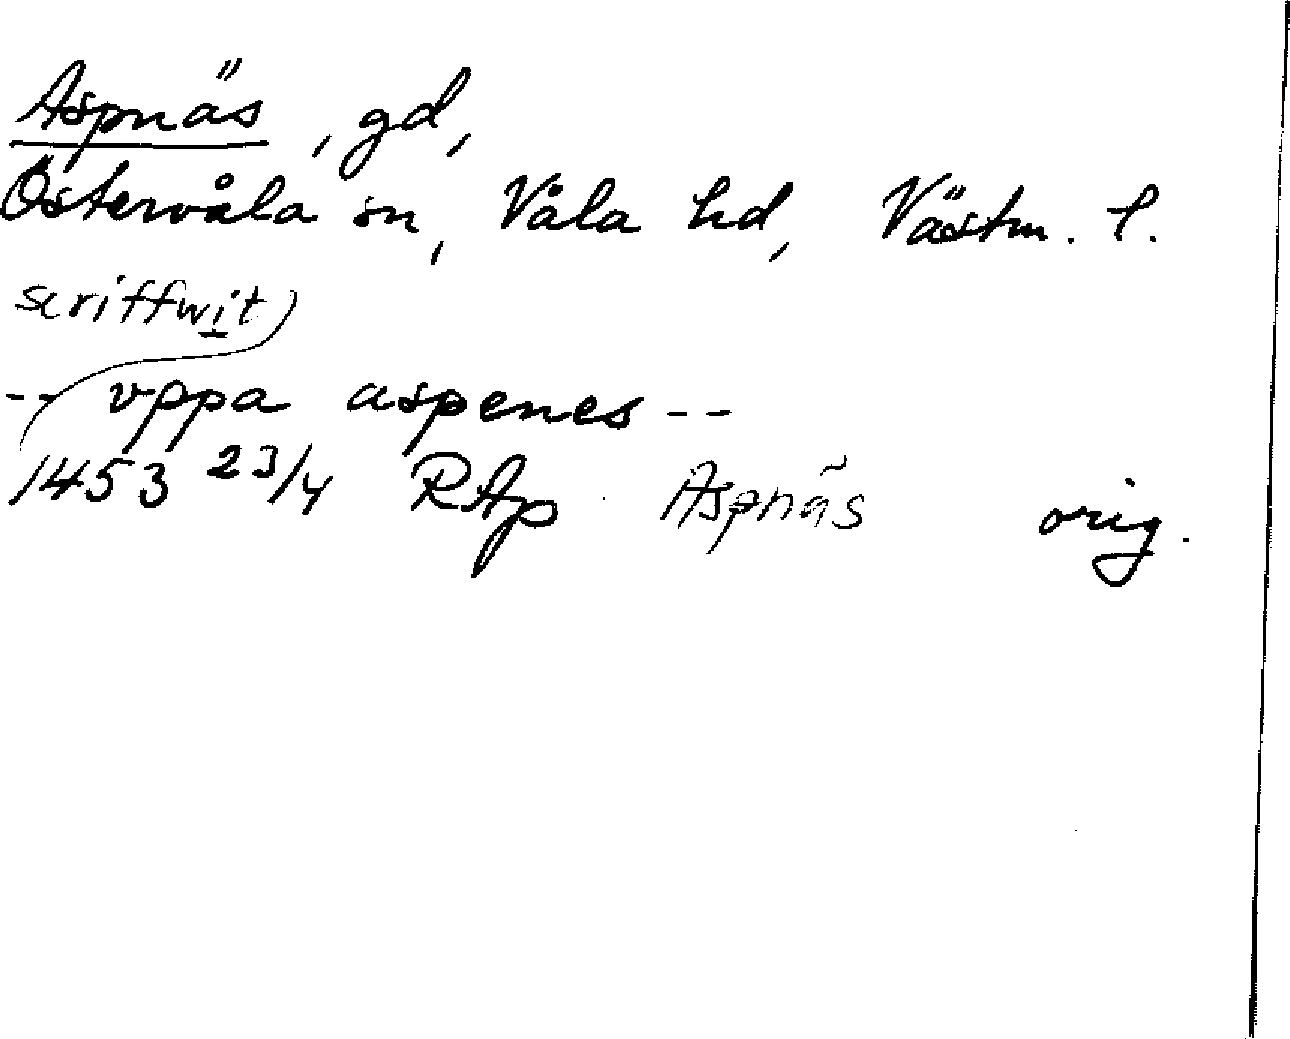 Aspnäs, gd,
Östervåla sn, Våla hd, Västm. l.
scriffwit)
-- vppa aspenes --
1453 23/4 RAp Aspnäs orig.